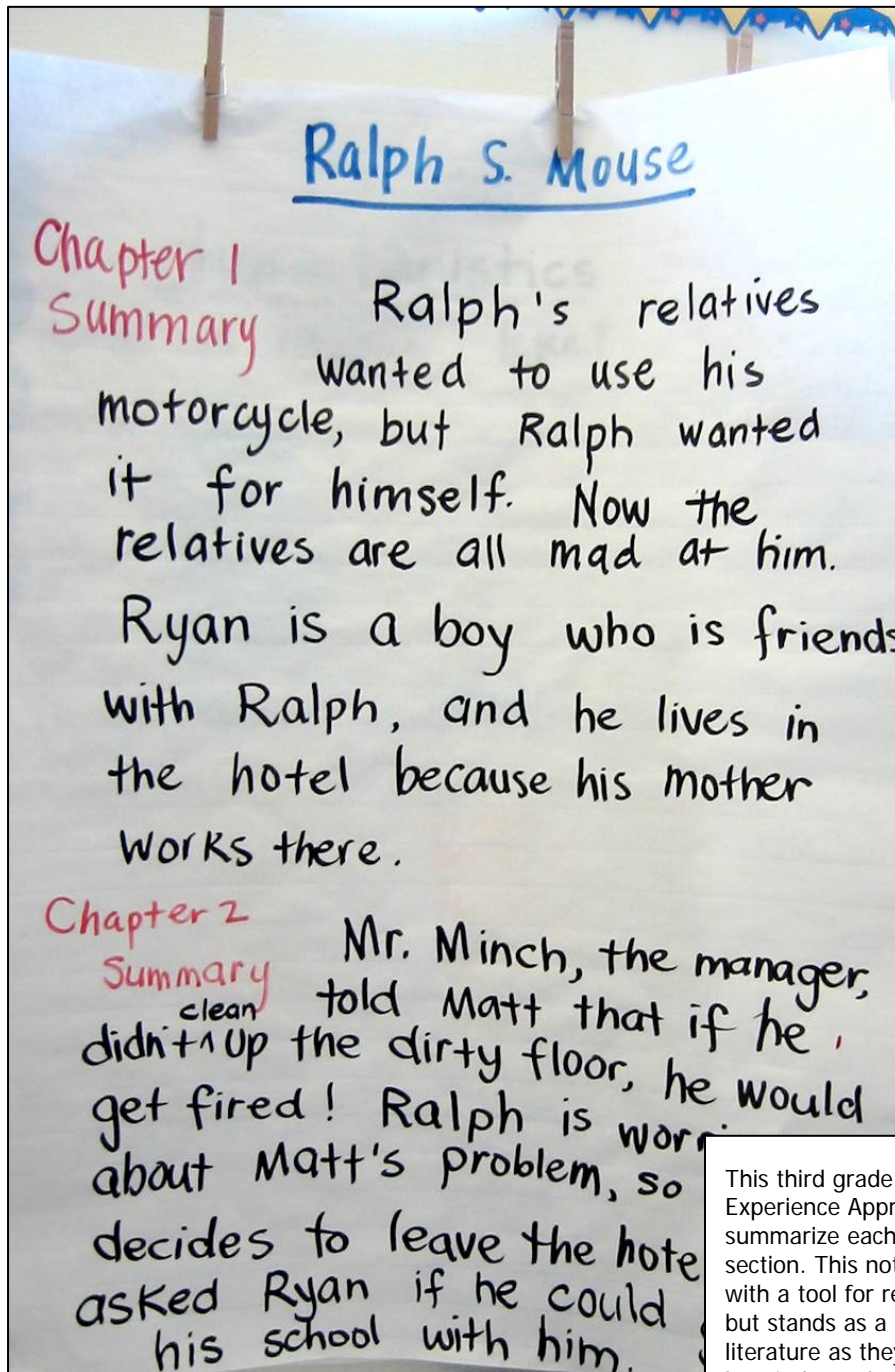 Ralph S. Mouse
Chapter 1
Summary
Ralph's relatives
wanted to use his
motorcycle, but Ralph wanted
it for himself. Now the
relatives are all mad at him.
Ryan is a boy who is friends
with Ralph, and he lives in
the hotel because his mother
works there.
Chapter 2
Summary
Mr. Minch, the manager,
told Matt that if he
didn't ^ clean up the dirty floor, he would
get fired! Ralph is
about Matt's problem, so
decides to leave the
asked Ryan if he could
his school with him.
This third grade
Experience
summarize each
section. This
with a tool for
but stands as a
literature as